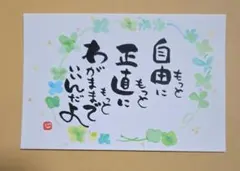 もっと
自由に
もっと
正直に
もっと
わがままで
いいんだよ